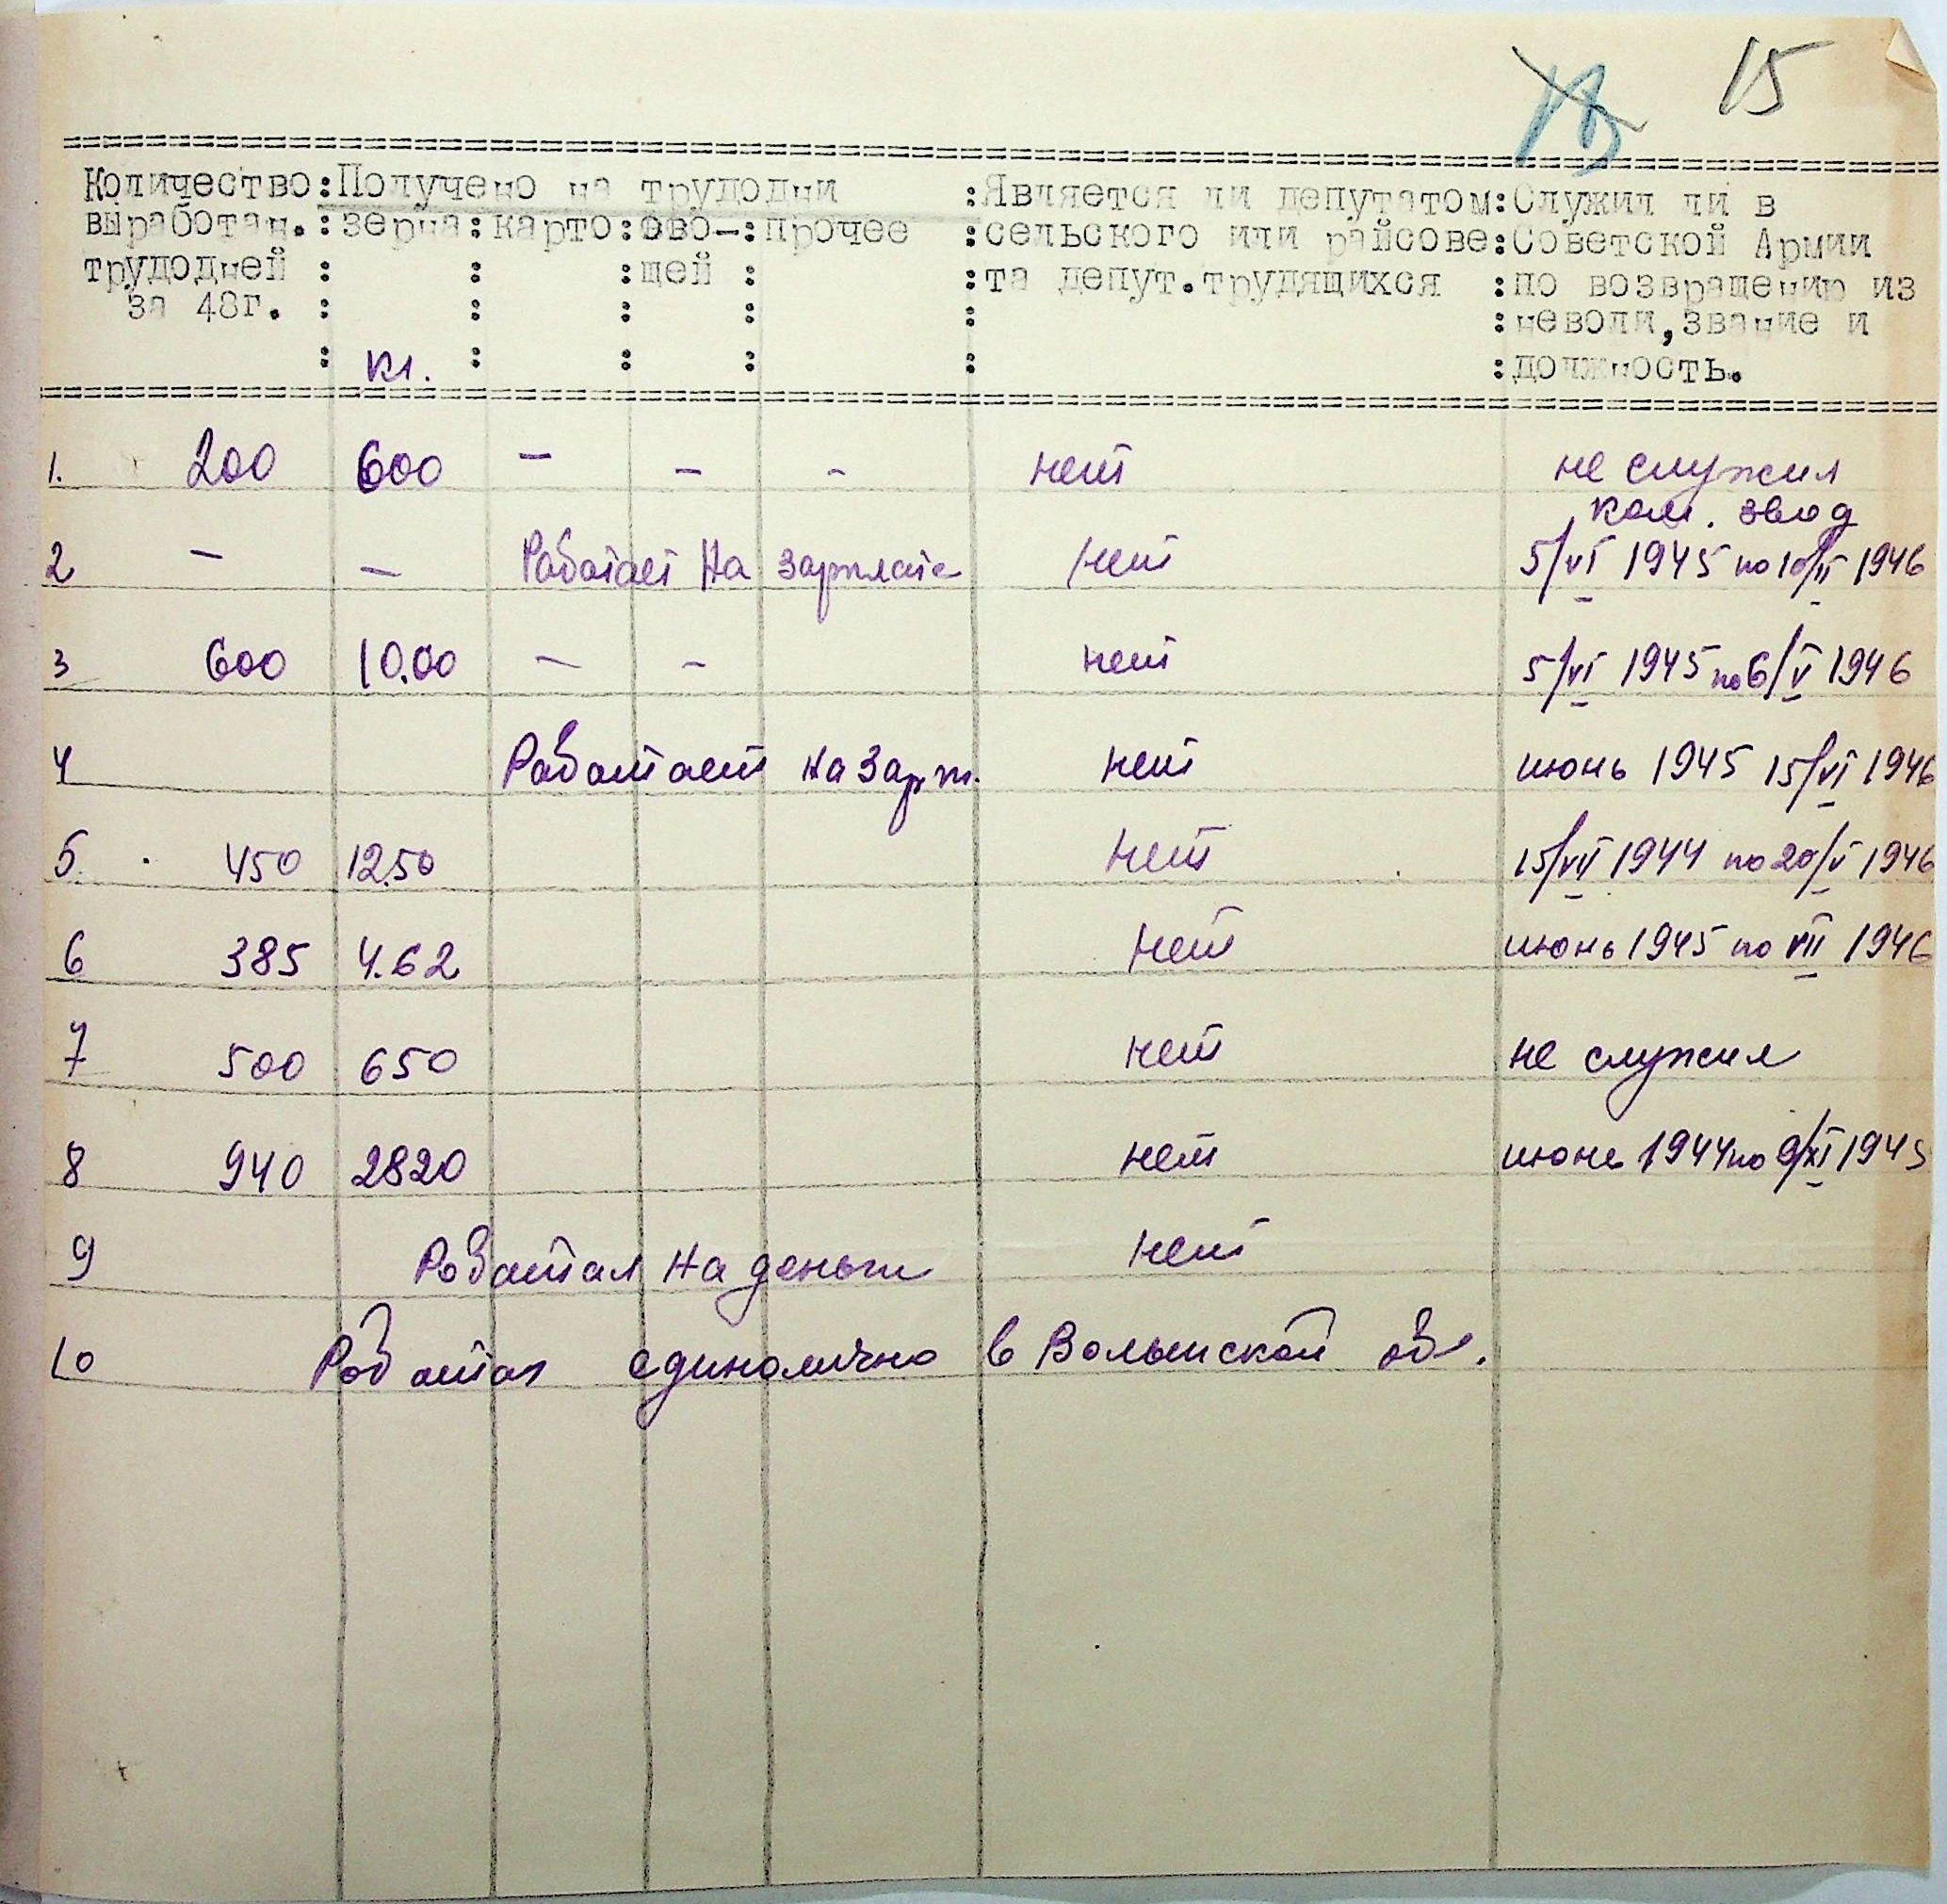 15
Количество:Получено на трудодни :Является ли депутатом:Служил ли в
выработан.:зерна:карто:ово-:прочее :сельского или райсове:Советской Армии
трудодней : : :щей : :та депут.трудящихся :по возвращению из
за 48г. : : : : : :неволи,звание и
: кг. : : : : :должность.
1. 200 600 — — - нет не служил
ком. звод
2 — — Работает на зарплате нет 5/VI 1945 по 10/II 1946
3 600 10.00 — — нет 5/VI 1945 по 6/V 1946
4 Работает на зарп. нет июнь 1945 15/VI 1946
5 450 12.50 нет 15/VII 1944 по 20/V 1946
6 385 4.62 нет июнь 1945 по VII 1946
7 500 650 нет не служил
8 940 2820 нет июнь 1944 по 9/XI 1945
9 Работал на деньги нет
10 Работал единолично в Волынской обл.